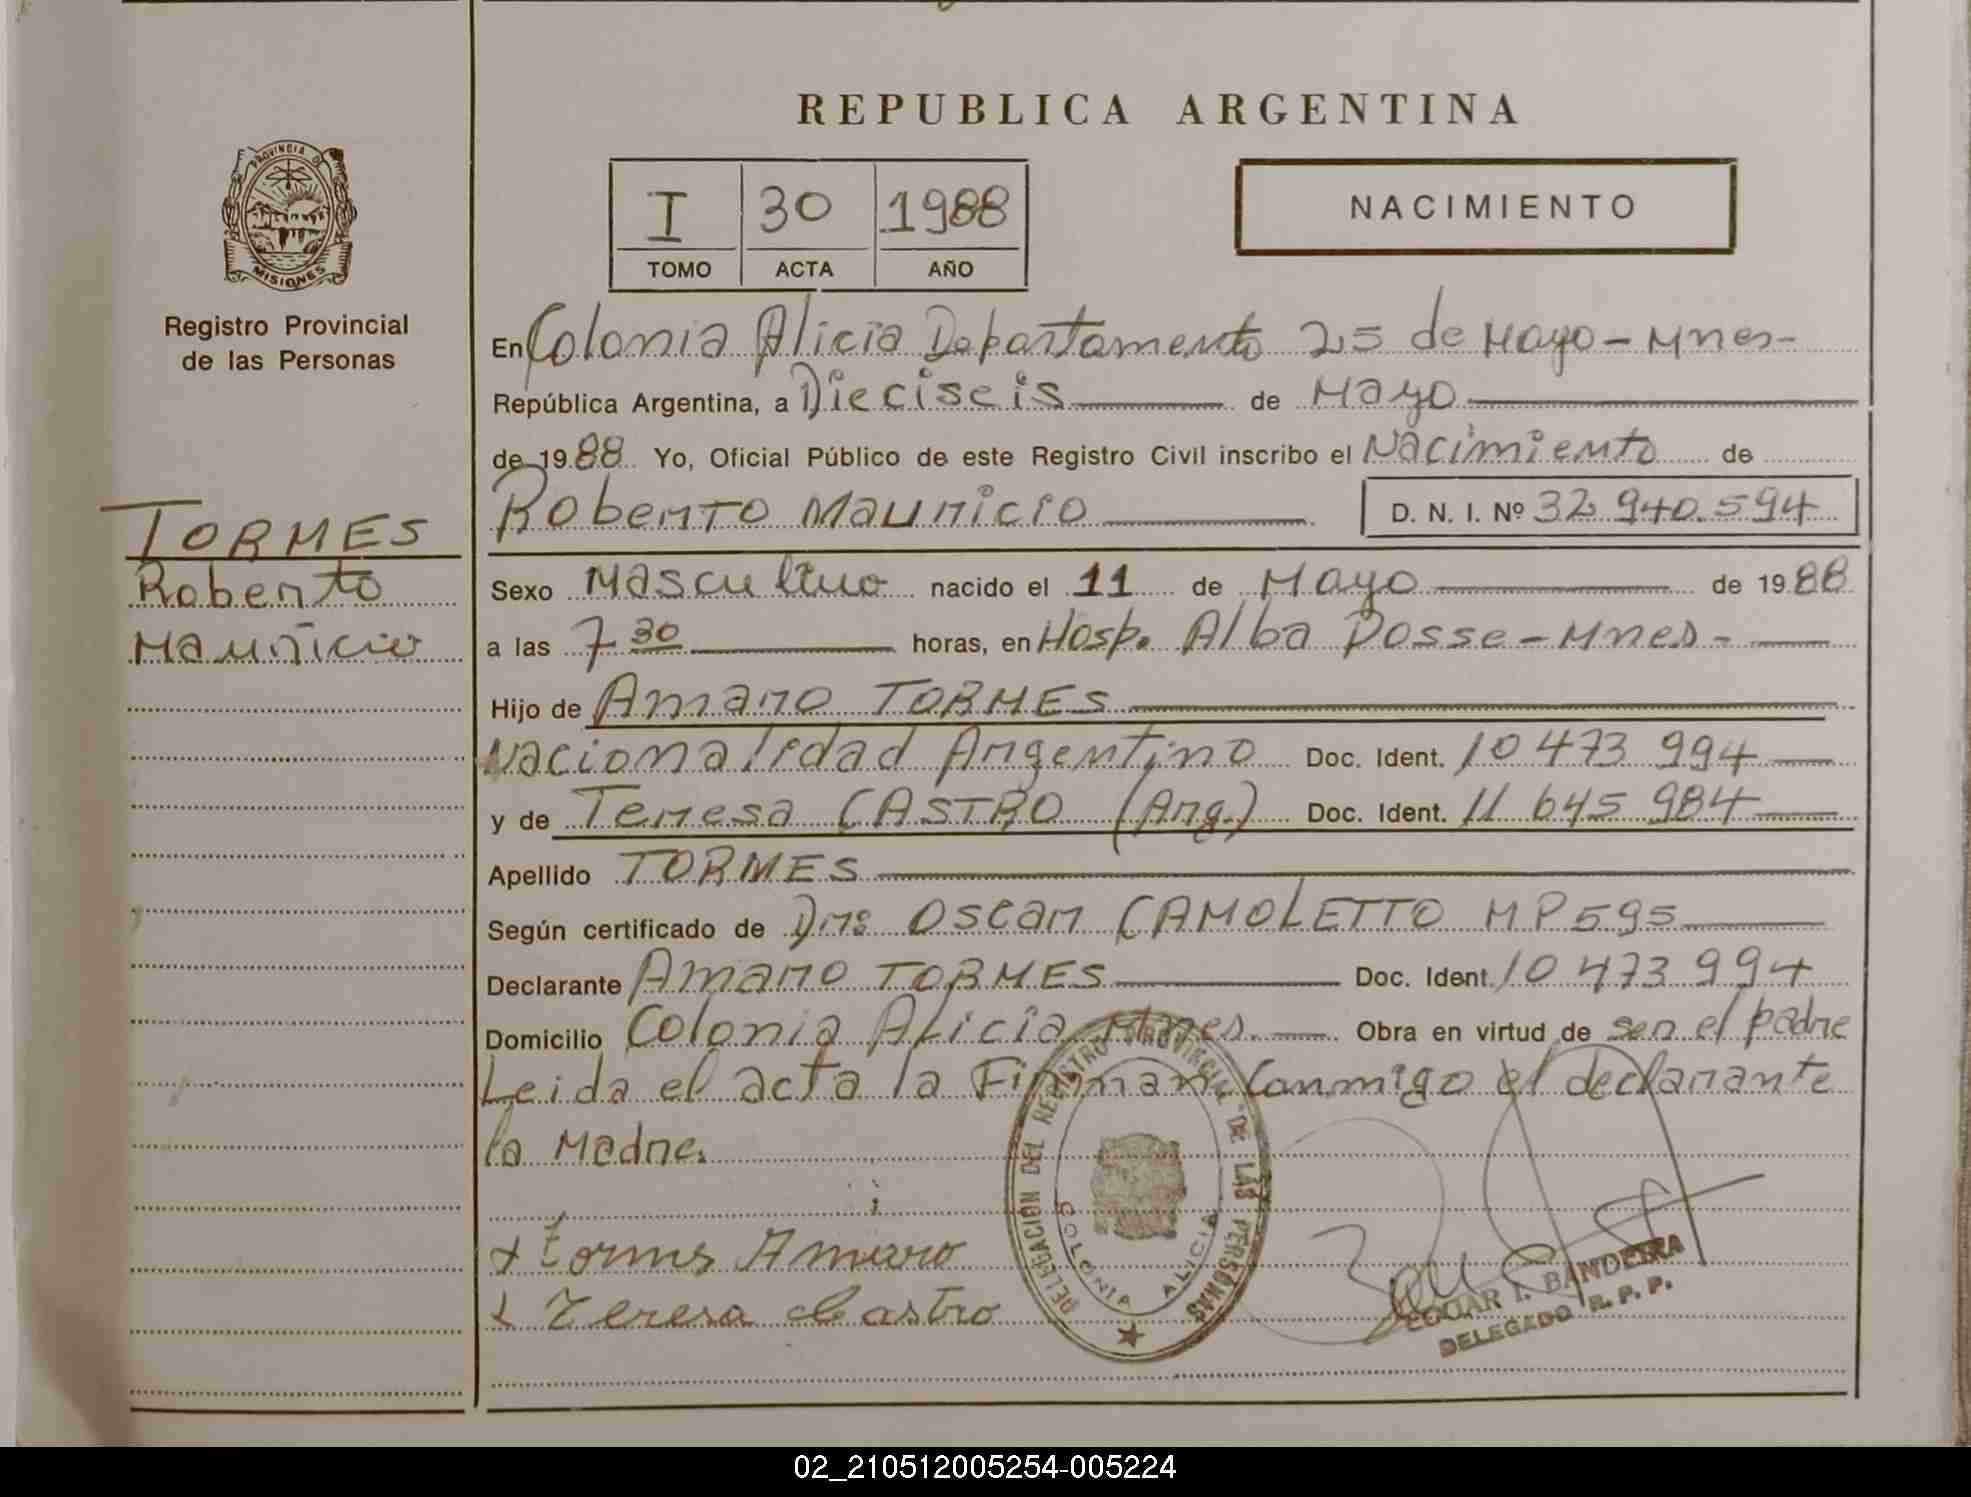 REPUBLICA ARGENTINA
PROVINCIA DE
MISIONES
Registro Provincial
de las Personas
I 30 1988
TOMO ACTA AÑO
NACIMIENTO
En Colonia Alicia Departamento 25 de Mayo - Mnes-
República Argentina, a Dieciseis de Mayo
de 1988 Yo, Oficial Público de este Registro Civil inscribo el Nacimiento de
Roberto Mauricio D. N. I. Nº 32 940.594
TORMES
Roberto
Mauricio
Sexo Masculino nacido el 11 de Mayo de 1988
a las 7 30 horas, en Hosp. Alba Posse - Mnes -
Hijo de Amaro TORMES
Nacionalidad Argentino Doc. Ident. 10 473 994
y de Teresa CASTRO (Arg.) Doc. Ident. 11 645 984
Apellido TORMES
Según certificado de Dr: Oscar CAMOLETTO MP 595
Declarante Amaro TORMES Doc. Ident. 10 473 994
Domicilio Colonia Alicia Mnes. Obra en virtud de ser el padre
Leida el acta la Firman Conmigo el declarante
la Madre.
DELEGACION DEL REGISTRO PROVINCIAL DE LAS PERSONAS
COLONIA ALICIA
x Torms Amaro
x Teresa Castro
EDGAR I. BANDEIRA
DELEGADO R. P. P.
02_210512005254-005224